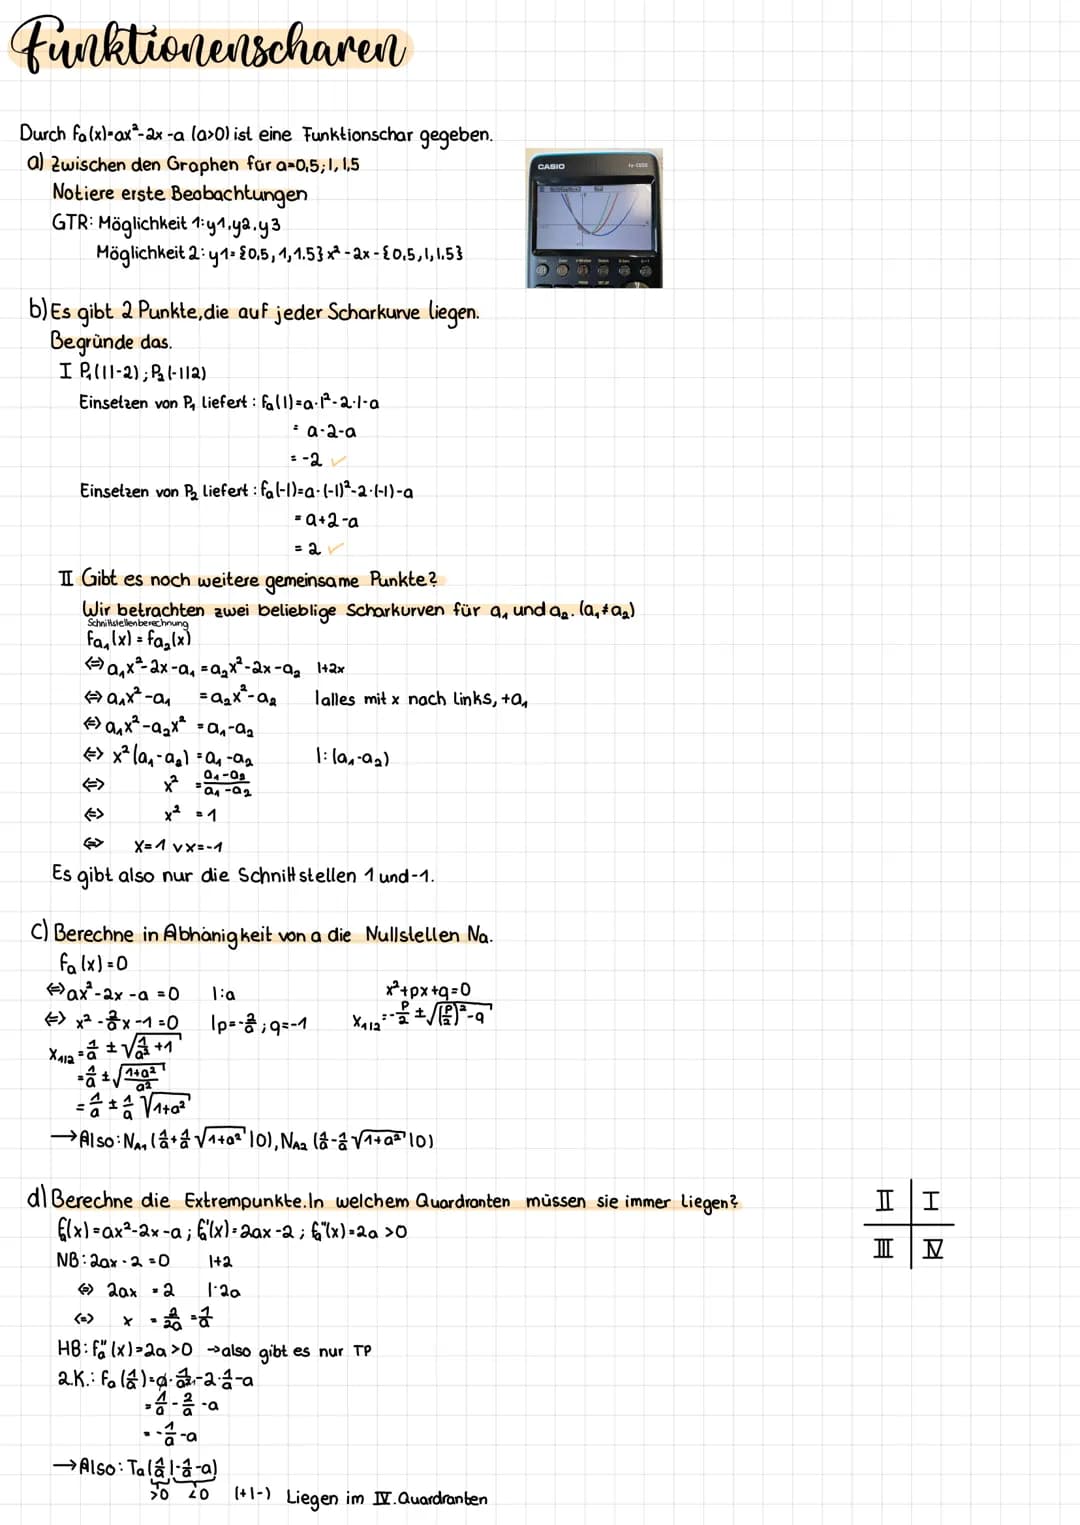 Funktionenscharen
Durch fa(x)=ax²-2x-a (a>0) ist eine Funktionschar gegeben.
a) Zwischen den Graphen für a=0,5; 1, 1,5
Notiere erste Beobachtungen
GTR: Möglichkeit 1: y1, y2, y3
Möglichkeit 2: y1= {0,5, 1, 1.5} x² - 2x - {0,5, 1, 1.5}
CASIO
b) Es gibt 2 Punkte, die auf jeder Scharkurve liegen.
Begründe das.
I P₁(1|-2); P₂(-1|2)
Einsetzen von P₁ liefert: fa(1)=a·1²-2·1-a
= a-2-a
= -2 ✓
Einsetzen von P₂ liefert: fa(-1)=a·(-1)²-2·(-1)-a
= a+2-a
= 2 ✓
II Gibt es noch weitere gemeinsame Punkte?
Wir betrachten zwei belieblige Scharkurven für a₁ und a₂. (a₁≠a₂)
Schnittstellenberechnung
fa₁(x) = fa₂(x)
⇔ a₁x²-2x-a₁ = a₂x²-2x-a₂ |+2x
⇔ a₁x²-a₁ = a₂x²-a₂ |alles mit x nach links, +a₁
⇔ a₁x²-a₂x² = a₁-a₂
⇔ x²(a₁-a₂) = a₁-a₂ |:(a₁-a₂)
⇔ x² = (a₁-a₂)/(a₁-a₂)
⇔ x² = 1
⇔ x=1 ∨ x=-1
Es gibt also nur die Schnittstellen 1 und -1.
c) Berechne in Abhänigkeit von a die Nullstellen Na.
fa(x)=0
⇔ ax²-2x-a=0 |:a x²+px+q=0
⇔ x²-2/a x-1=0 |p=-2/a; q=-1 x₁|₂=-p/2±√((p/2)²-q)
x₁|₂ = 1/a ± √(1/a²+1)
= 1/a ± √((1+a²)/a²)
= 1/a ± 1/a √(1+a²)
→ Also: NA₁ (1/a+1/a√(1+a²)|0), NA₂ (1/a-1/a√(1+a²)|0)
d) Berechne die Extrempunkte. In welchem Quardranten müssen sie immer liegen?
II I
III IV
fa(x)=ax²-2x-a; fa'(x)=2ax-2; fa''(x)=2a>0
NB: 2ax-2=0 |+2
⇔ 2ax = 2 |:2a
⇔ x = 2/2a = 1/a
HB: fa''(x)=2a>0 → also gibt es nur TP
2.K.: fa(1/a)=a·1/a²-2·1/a-a
= 1/a - 2/a - a
= -1/a - a
→ Also: Ta(1/a|-1/a-a)
>0 <0 (+|-) Liegen im IV. Quardranten